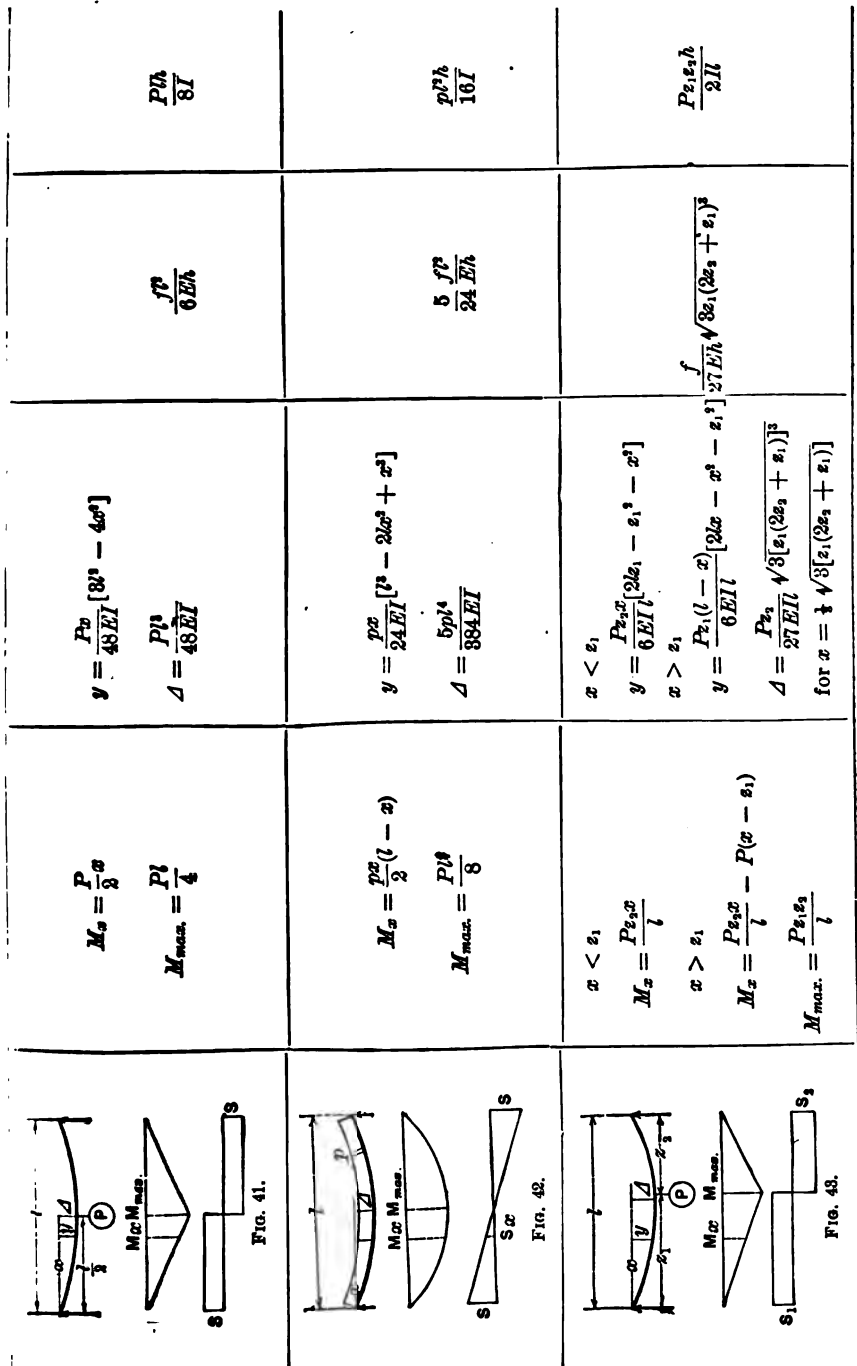 l
x
y
Δ
l/2
P
Mx Mmax.
S
S
FIG. 41.
M_x = P/2 x
M_max. = Pl/4
y = Px/48EI [3l² − 4x²]
Δ = Pl³/48EI
fl²/6Eh
Plh/8I
l
x
y
Δ
p
Mx Mmax.
S
Sx
S
FIG. 42.
M_x = px/2 (l − x)
M_max. = Pl²/8
y = px/24EI [l³ − 2lx² + x³]
Δ = 5pl⁴/384EI
5/24 fl²/Eh
pl²h/16I
l
x
y
Δ
z₁
z₂
P
Mx Mmax.
S₁
S₂
FIG. 43.
x < z₁
M_x = Pz₂x/l
x > z₁
M_x = Pz₂x/l − P(x − z₁)
M_max. = Pz₁z₂/l
x < z₁
y = Pz₂x/6EIl [2lz₁ − z₁² − x²]
x > z₁
y = Pz₁(l − x)/6EIl [2lx − x² − z₁²]
Δ = Pz₂/27EIl √3[z₁(2z₂ + z₁)]³
for x = ⅓ √3[z₁(2z₂ + z₁)]
f/27Eh √3z₁(2z₂ + z₁)³
Pz₁z₂h/2Il